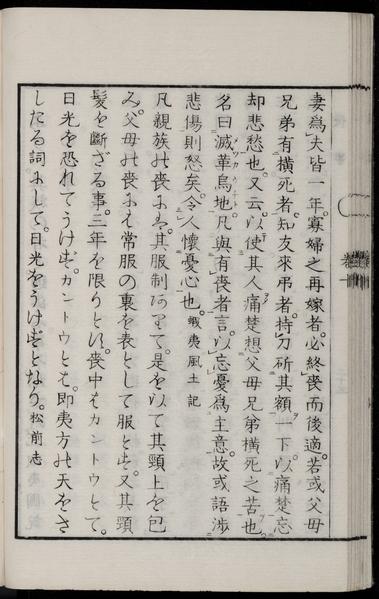 妻爲夫皆一年。寡婦之再嫁者。必終喪而後適。若或父母
兄弟有橫死者。知友來弔者。持刀斫其額一下。以痛楚忘
却悲愁也。又云。以使其人痛楚想父母兄弟橫死之苦也。
名曰滅革鳥地。凡與有喪者言。以忘憂爲主意。故或語涉
悲傷則怒矣。令人懷憂心也。蝦夷風土記
凡親族の喪にハ。其服制ありて。是を以て其頸上を包
み。父母の喪にハ常服の裏を表として服とす。又其頭
髮を斷ざる事。三年を限りとす。喪中をカントウとて。
日光を恐れてうけず。カントウとは。即夷方の天をさ
したる詞にして。日光をうけずとなり。松前志